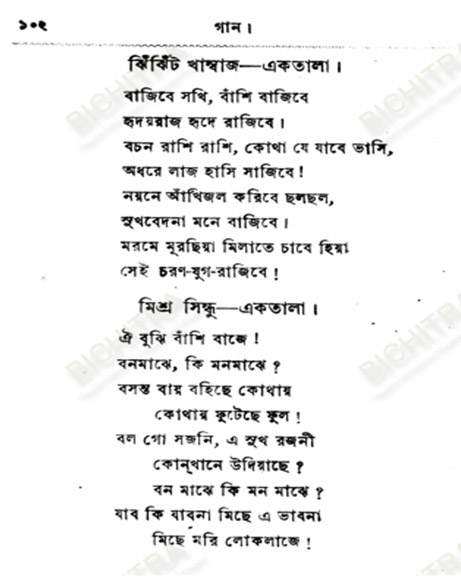 ১০২ গান।
ঝিঁঝিঁট খাম্বাজ—একতালা।
বাজিবে সখি, বাঁশি বাজিবে
হৃদয়রাজ হৃদে রাজিবে।
বচন রাশি রাশি, কোথা যে যাবে ভাসি,
অধরে লাজ হাসি সাজিবে!
নয়নে আঁখিজল করিবে ছলছল,
সুখবেদনা মনে বাজিবে।
মরমে মূরছিয়া মিলাতে চাবে হিয়া
সেই চরণ-যুগ-রাজিবে!
মিশ্র সিন্ধু—একতালা।
ঐ বুঝি বাঁশি বাজে!
বনমাঝে, কি মনমাঝে?
বসন্ত বায় বহিছে কোথায়
কোথায় ফুটেছে ফুল!
বল গো সজনি, এ সুখ রজনী
কোন্‌খানে উদিয়াছে?
বন মাঝে কি মন মাঝে?
যাব কি যাবনা মিছে এ ভাবনা
মিছে মরি লোকলাজে!
BICHITRA
BICHITRA
BICHITRA
BICHITRA